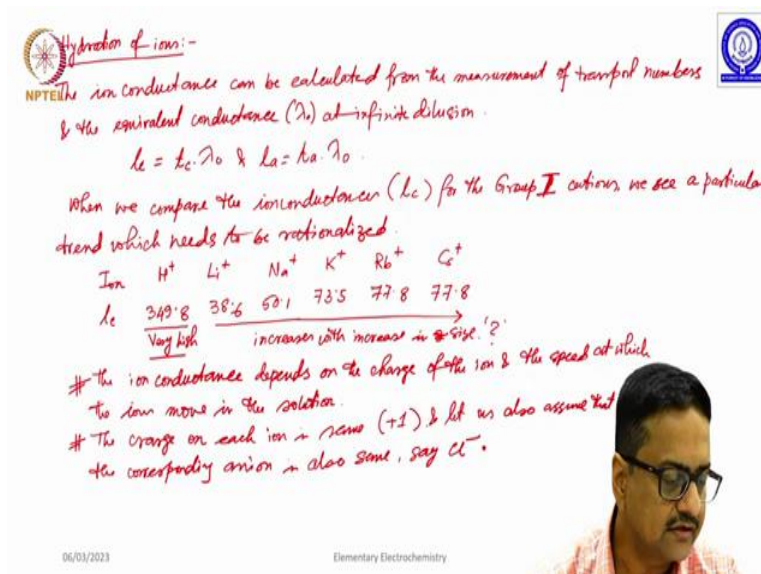 Hydration of ions:-
NPTEL
The ion conductance can be calculated from the measurement of transport numbers
& the equivalent conductance (λ₀) at infinite dilution.
lc = tc.λ0 & la = ta.λ0
When we compare the ion conductances (lc) for the Group I cations, we see a particula
trend which needs to be rationalized.
Ion H⁺ Li⁺ Na⁺ K⁺ Rb⁺ Cs⁺
lc 349.8 38.6 50.1 73.5 77.8 77.8
Very high increases with increase in size '?'
# The ion conductance depends on the charge of the ion & the speed at which
the ions move in the solution.
# The charge on each ion is same (+1) & let us also assume that
the corresponding anion is also same, say Cl⁻.
06/03/2023 Elementary Electrochemistry